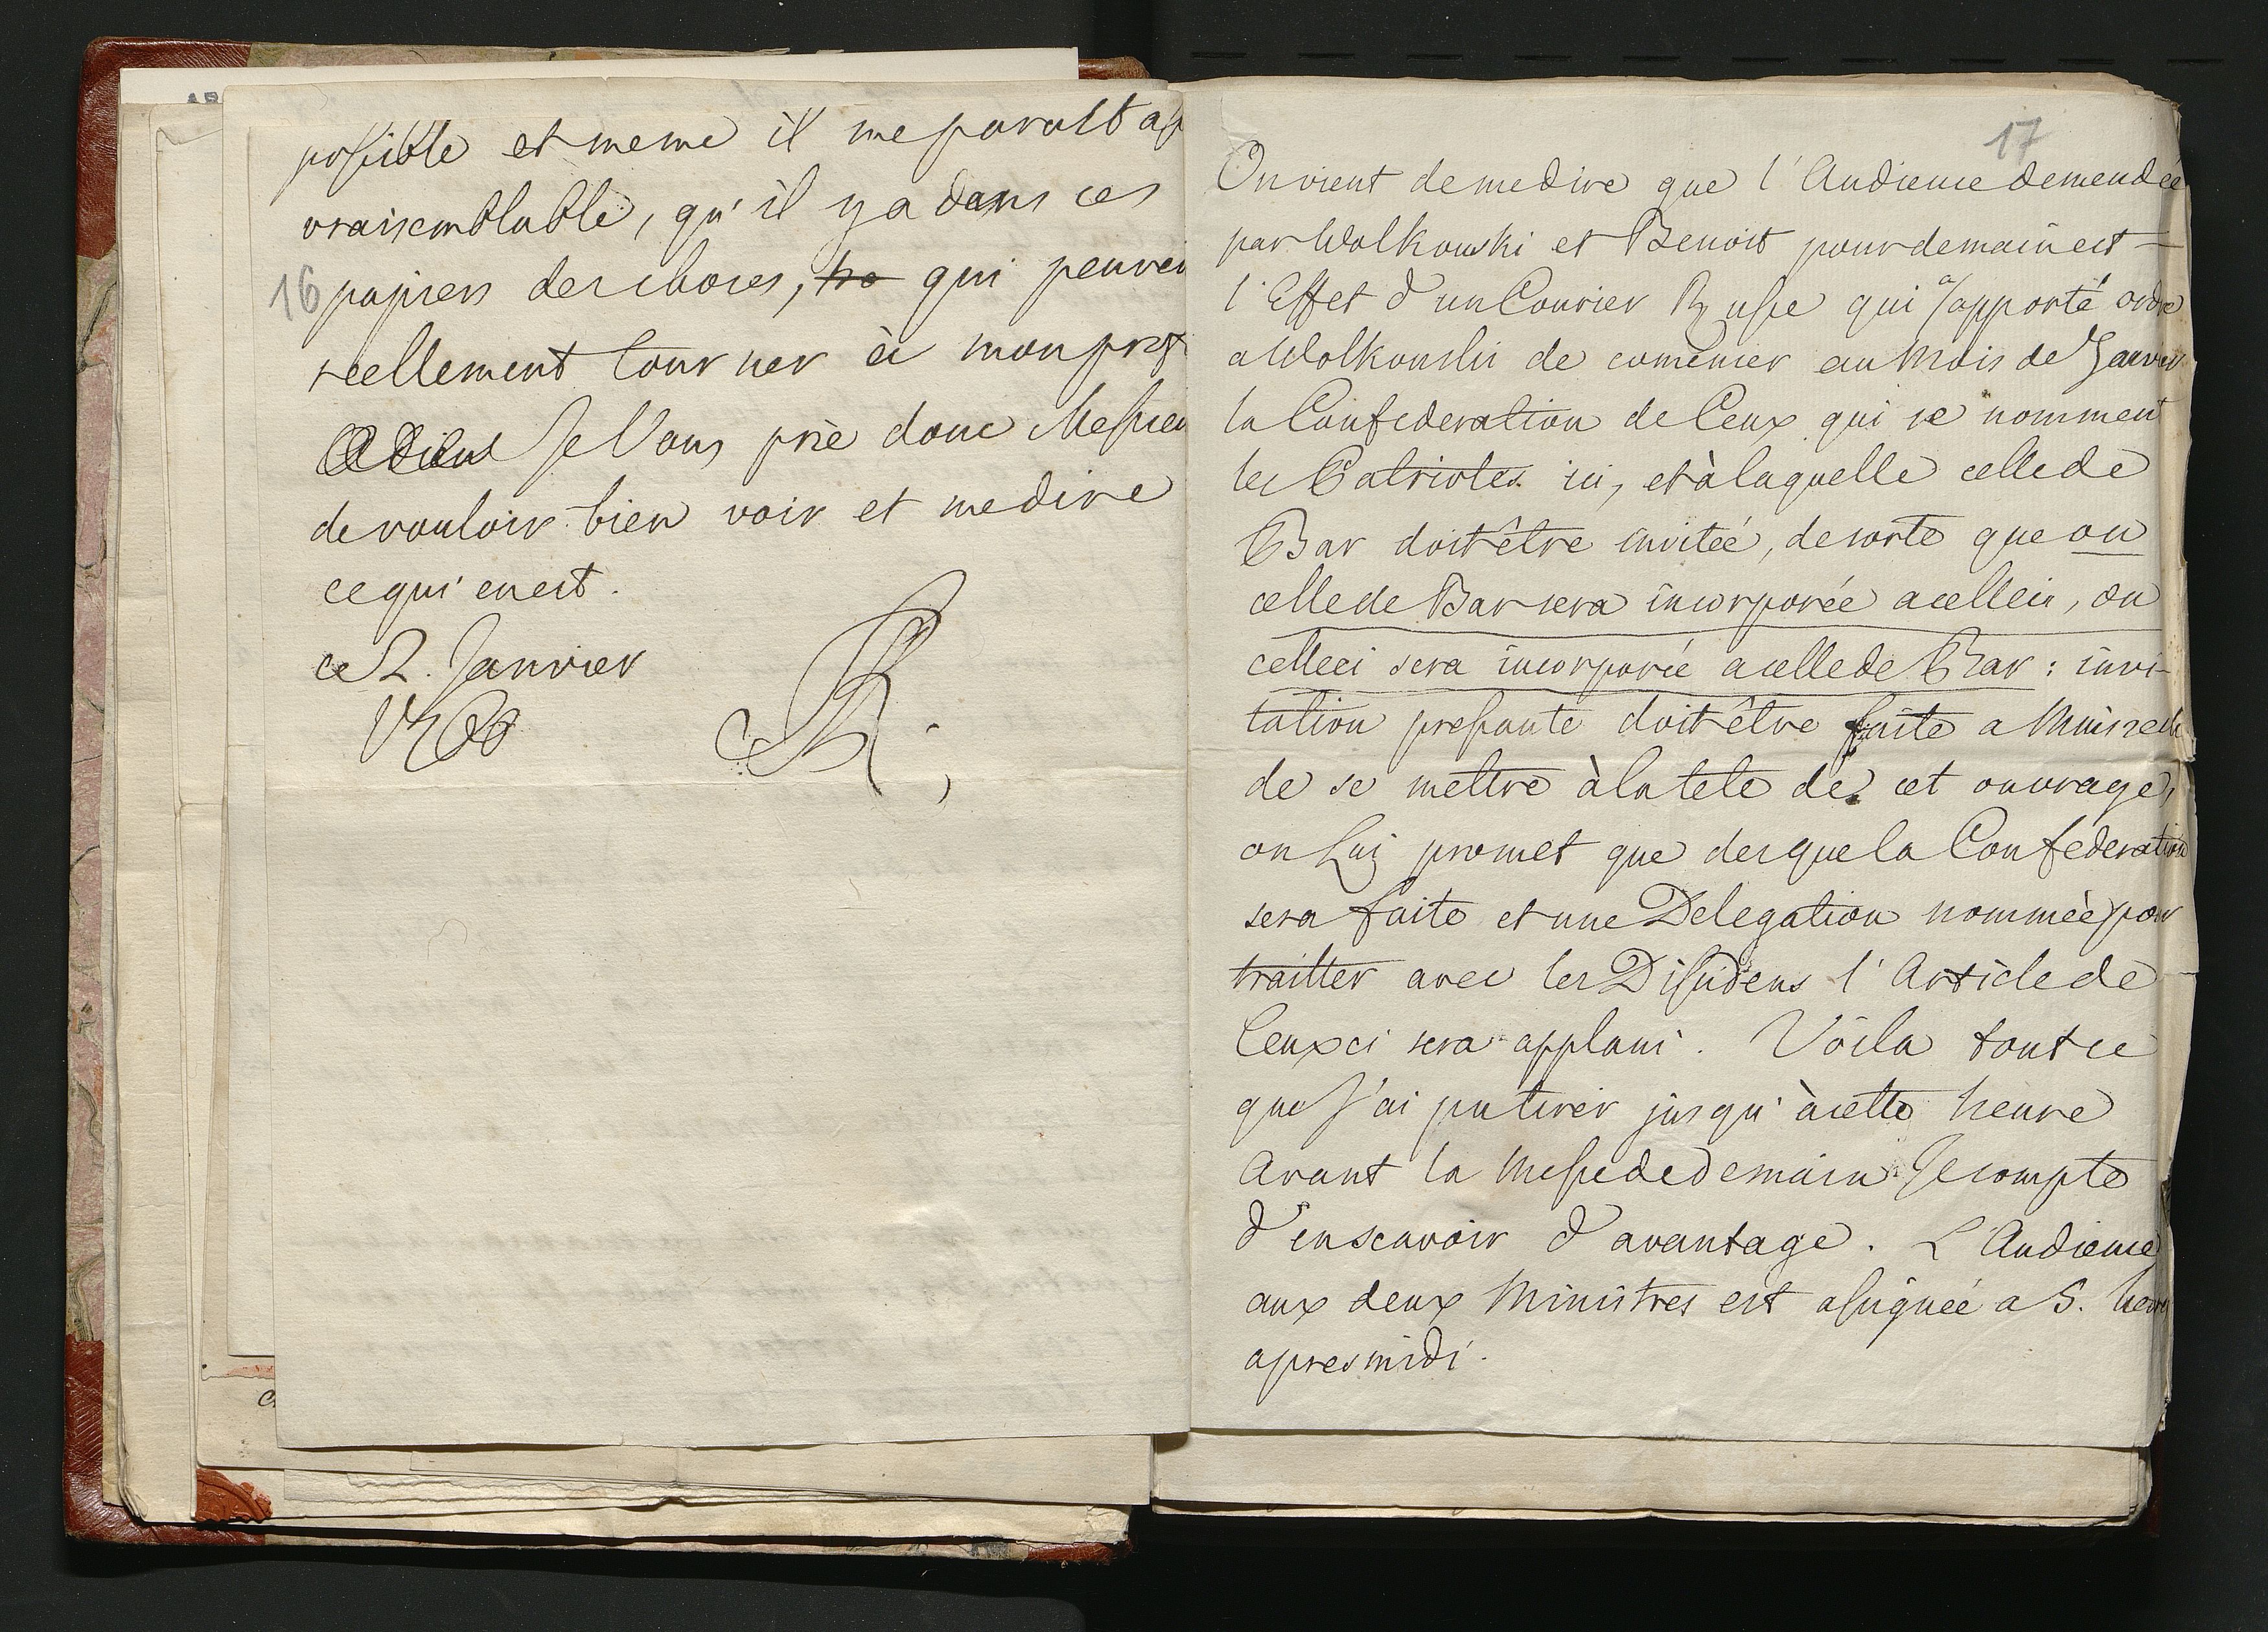 possible et meme il me paroist
vraisemblable, qu'il y a dans ces
16
papiers des choses, qui peuven
reellement tourner à mon prof
Je Vous prie donc Messieu
de vouloir bien voir et me dire
ce qui en est.
ce 2. Janvier
SAR.
17
On vient de me dire que l'Audience demendée
par Wolkonski et Benoit pour demain est
l'Effet d'un Courier Russe qui a apporté ordre
a Wolkonski de comencer au Mois de Janvier
la Confederation de Ceux qui se nomment
les Patriotes ici, et à laquelle celle de
Bar doit être invitée, de sorte que ou
celle de Bar sera incorporée a celleci, ou
celleci sera incorporée a celle de Bar : invi-
tation pressante doit être faite a Mniszech
de se mettre à la tete de cet ouvrage,
on Lui promet que des que la Confederation
sera faite et une Delegation nommée pour
traitter avec les Dissidens l'Article de
Ceux ci sera applani. Voila tout ce
que J'ai pu tirer jusqu'à cette heure
Avant la Messe de demain Je compte
d'en scavoir d'avantage. L'Audience
aux deux Ministres est assignée a 5. heures
apres midi.